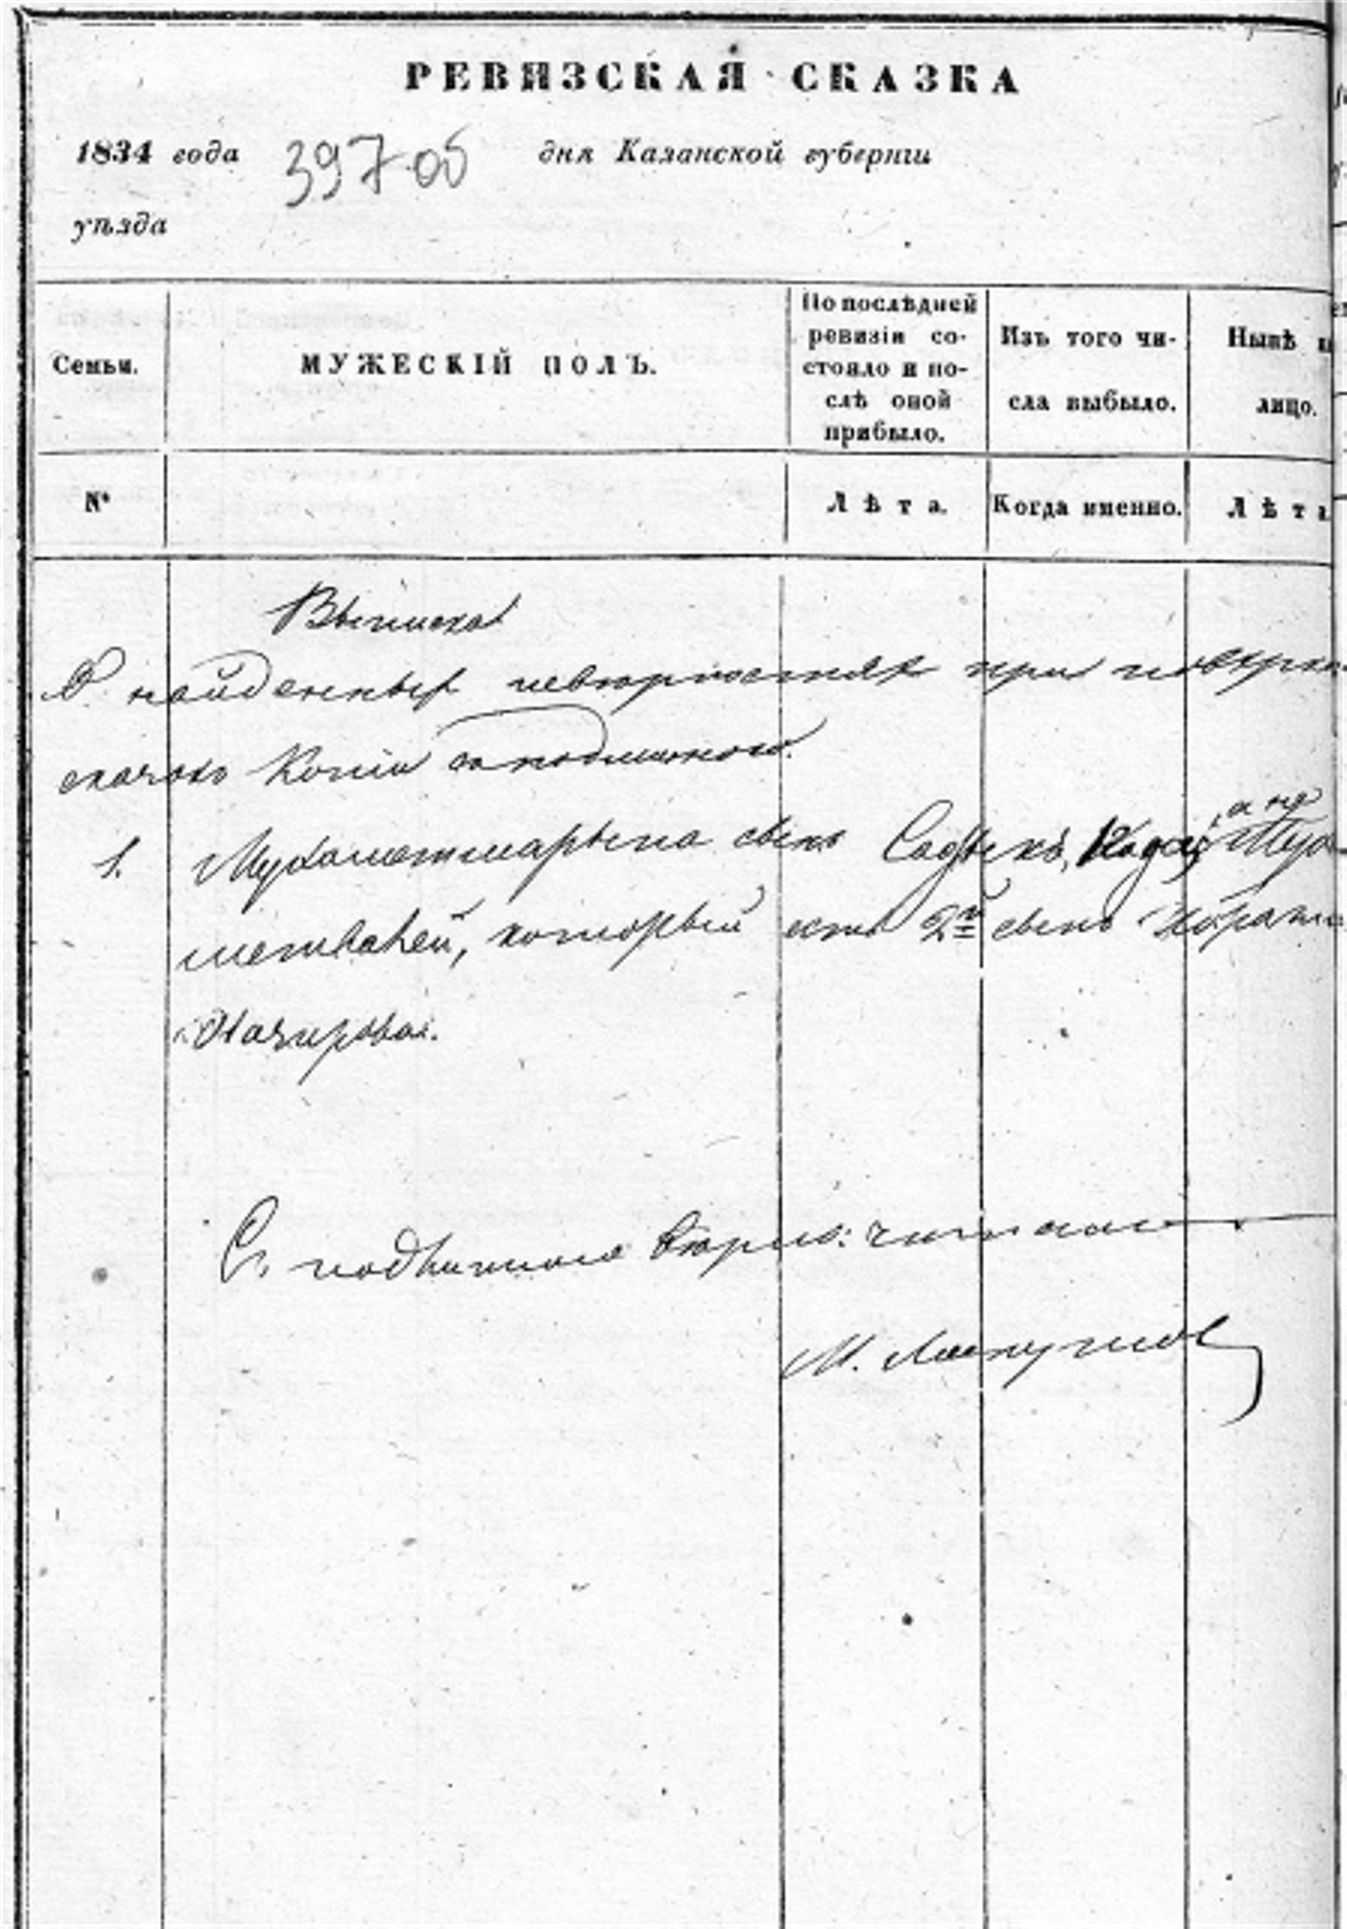 РЕВИЗСКАЯ СКАЗКА
1834 года 397 об дня Казанской губернiи
уѣзда
Семьи.
МУЖЕСКIЙ ПОЛЪ.
По послѣдней
ревизiи со-
стояло и по-
слѣ оной
прибыло.
Изъ того чи-
сла выбыло.
Нынѣ
лицо.
№
Лѣта.
Когда именно.
Лѣта
Выписка
О найденных неверностях при поверке
Копiи с подлинною.
а не
1. Мухаметшарыпа сынъ Садыкъ,
метвалей, который есть 2й сынъ
Назирова.
Съ подлинною верно: читал
М.